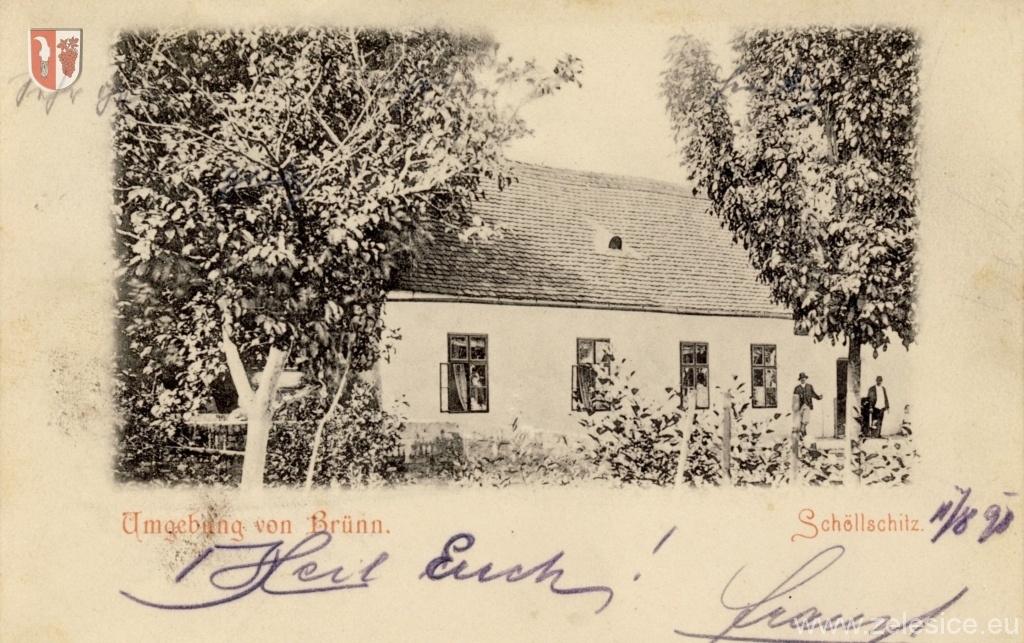 Umgebung von Brünn.
Schöllschitz.
Heil Euch!
www.zelesice.eu